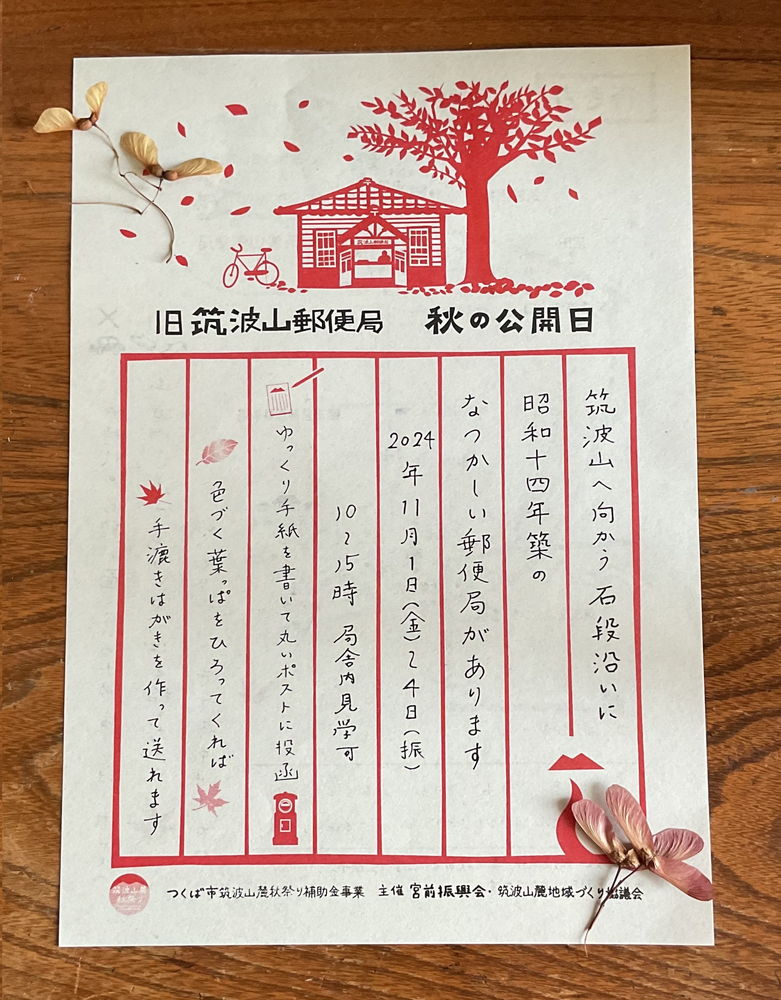 筑波山郵便局
旧筑波山郵便局　秋の公開日
筑波山へ向かう石段沿いに
昭和十四年築の
なつかしい郵便局があります
2024年11月1日(金)~4日(振)
10~15時 局舎内見学可
ゆっくり手紙を書いて丸いポストに投函
色づく葉っぱをひろってくれば
手漉きはがきを作って送れます
筑波山麓
秋祭り
つくば市筑波山麓秋祭り補助金事業　主催 宮前振興会・筑波山麓地域づくり協議会